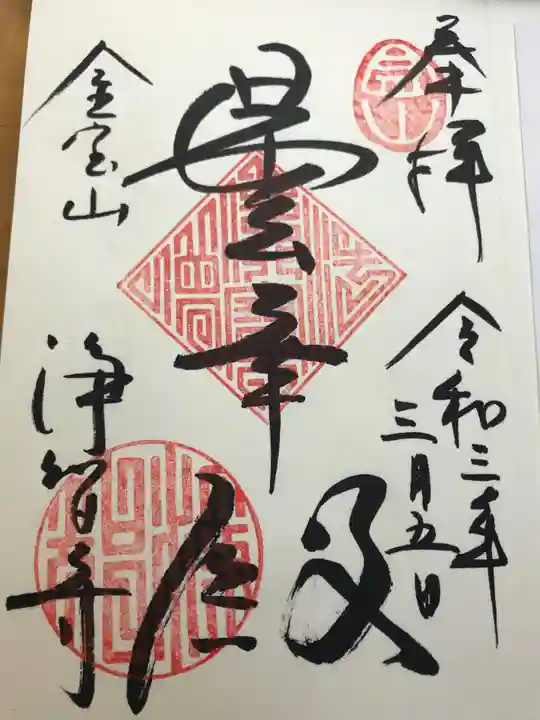 奉拝
令和三年
三月五日
曇華殿
金宝山
浄智寺